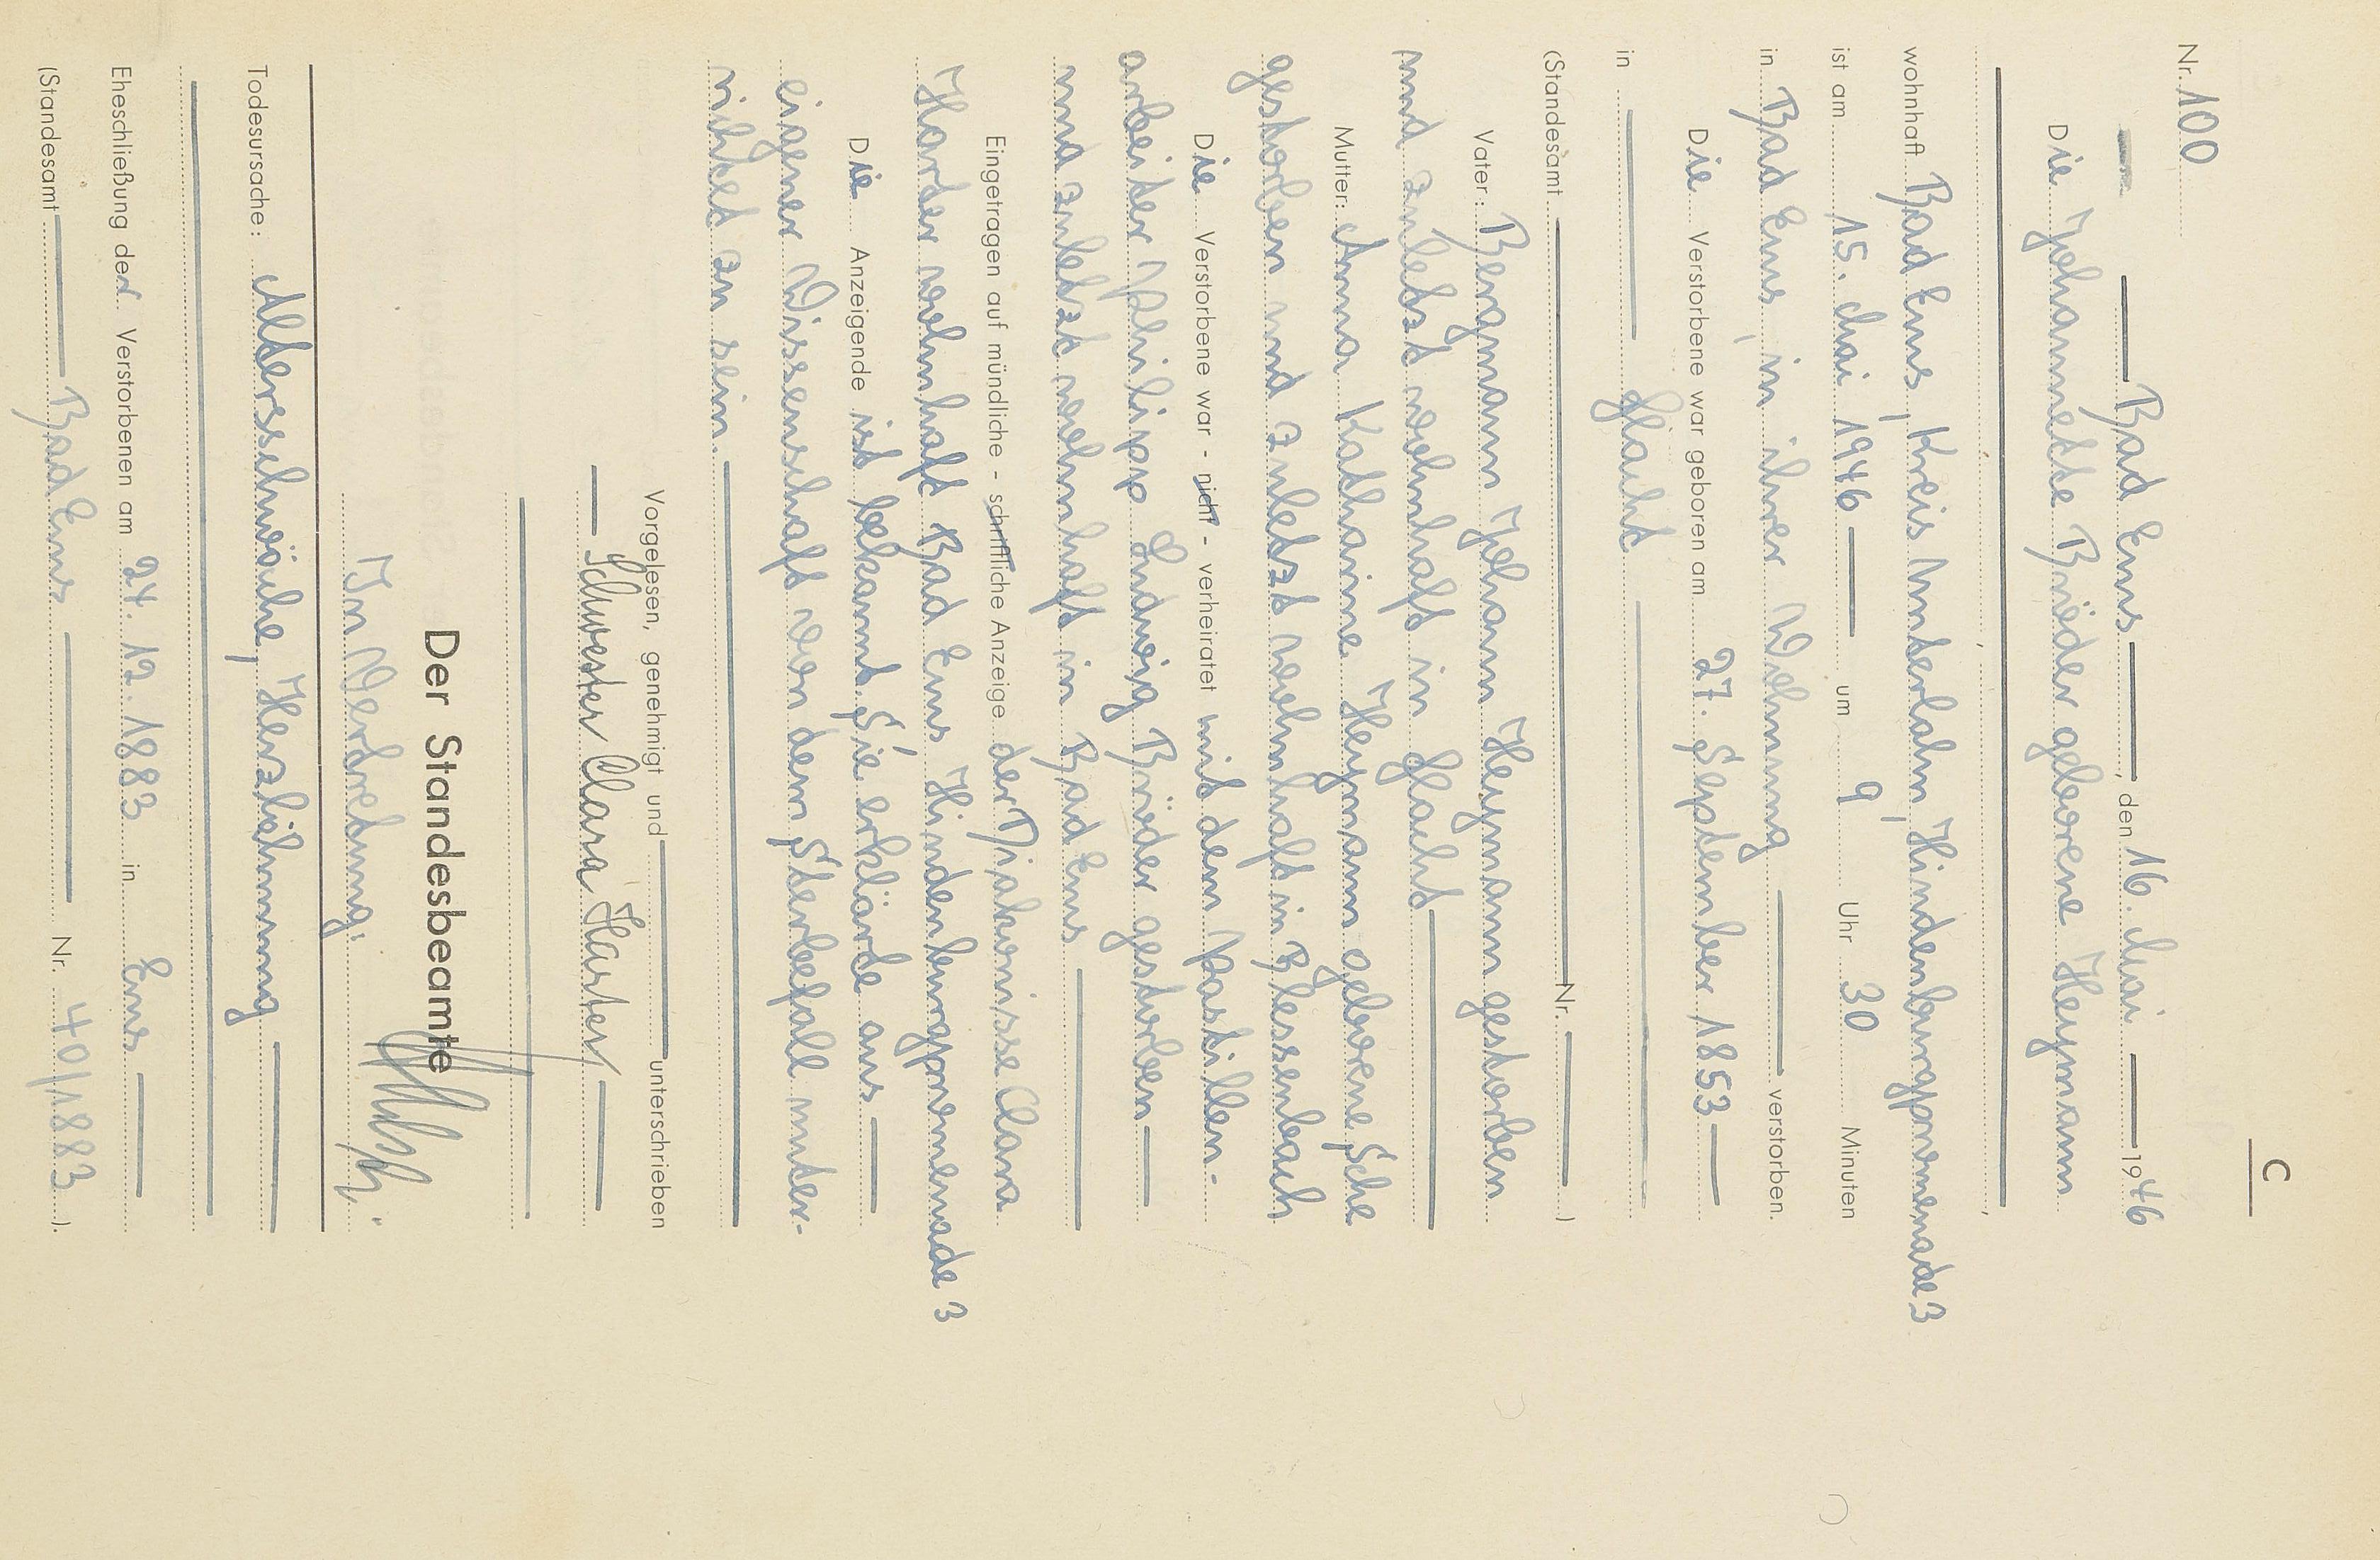 C
Nr. 100
Bad Ems, den 16. Mai 1946
Die Johannette Bröder geborene Heymann
wohnhaft Bad Ems, Kreis Unterlahn, Hindenburgpromenade 3
ist am 15. Mai 1946 um 9 Uhr 30 Minuten
in Bad Ems, in ihrer Wohnung verstorben.
Die Verstorbene war geboren am 27. September 1853
in Giacht
(Standesamt Nr. )
Vater: Bergmann Johann Heymann gestorben
und zuletzt wohnhaft in Giacht
Mutter: Anna Kathaine Heymann geborene Sche
gestorben und zuletzt wohnhaft in Blessenbach
Die Verstorbene war - nicht - verheiratet mit dem Pastillen-
arbeiter Philipp Ludwig Bröder gestorben
und zuletzt wohnhaft in Bad Ems
Eingetragen auf mündliche - schriftliche Anzeige der Diakonisse Clara
Harder wohnhaft Bad Ems Hindenburgpromenade 3
Die Anzeigende ist bekannt. Sie erklärde aus
eigener Wissenschaft von dem Sterbefall unter-
richtet zu sein.
Vorgelesen, genehmigt und unterschrieben
Schwester Clara Harter
Der Standesbeamte
In Vertretung:
Todesursache: Altersschwäche, Herzlähmung
Eheschließung der Verstorbenen am 24. 12. 1883 in Ems
(Standesamt Bad Ems Nr. 40/1883 ).